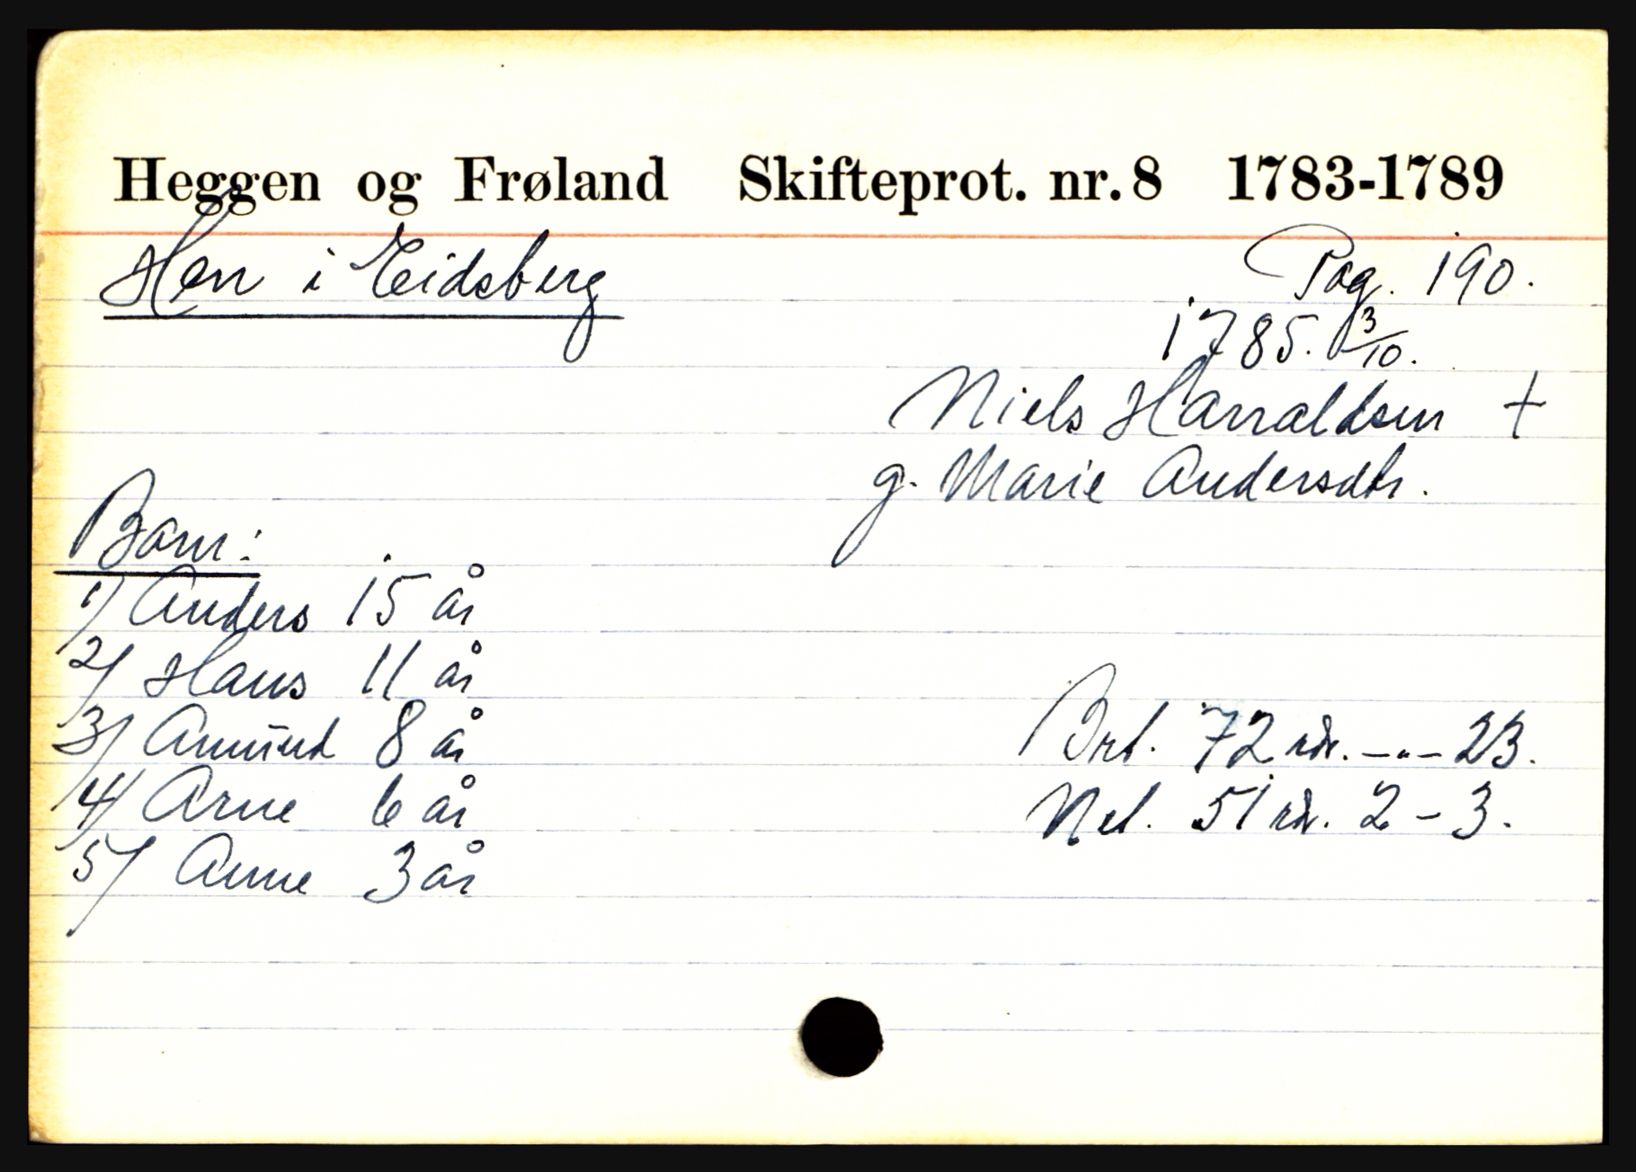 Heggen og Frøland Skifteprot. nr. 8 1783-1789
Hen i Eidsberg
Pag. 190.
1785. 3/10.
Niels Harraldsen +
g. Marie Andersdtr.
Barn:
1) Anders 15 år
2) Hans 11 år
3) Amund 8 år
4) Arne 6 år
5) Anne 3 år
Brt. 72 rdr. -"- 23.
Net. 51 rdr. 2 - 3.